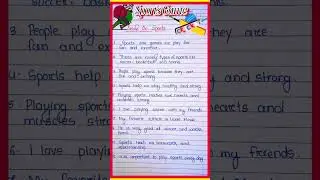 Sports
1. Sports are games we play for
fun and exercise.
2. There are many types of sports like
soccer, basketball and tennis.
3. People play sports because they are
fun and exciting.
4. Sports help us stay healthy and strong.
5. Playing sports makes our hearts and
muscles strong.
6. I love playing with my friends.
7. My favorite athlete is Lionel Messi.
8. He is very good at soccer and
9. Sports teach us teamwork and
10. It is important to play sports every day.
3. People play
fun and exc
4. Sports help
5. Playing sports
muscles stro
6. I love playi
they are
and strong
hearts and
my friends.